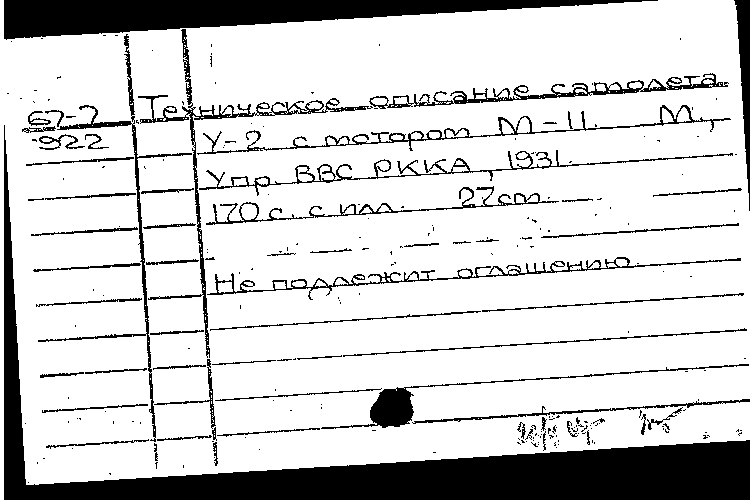 67-7 Техническое описание самолета
922 У-2 с мотором М-11. М.,
Упр. ВВС РККА, 1931.
170 с. с илл. 27 cm.
Не подлежит оглашению.